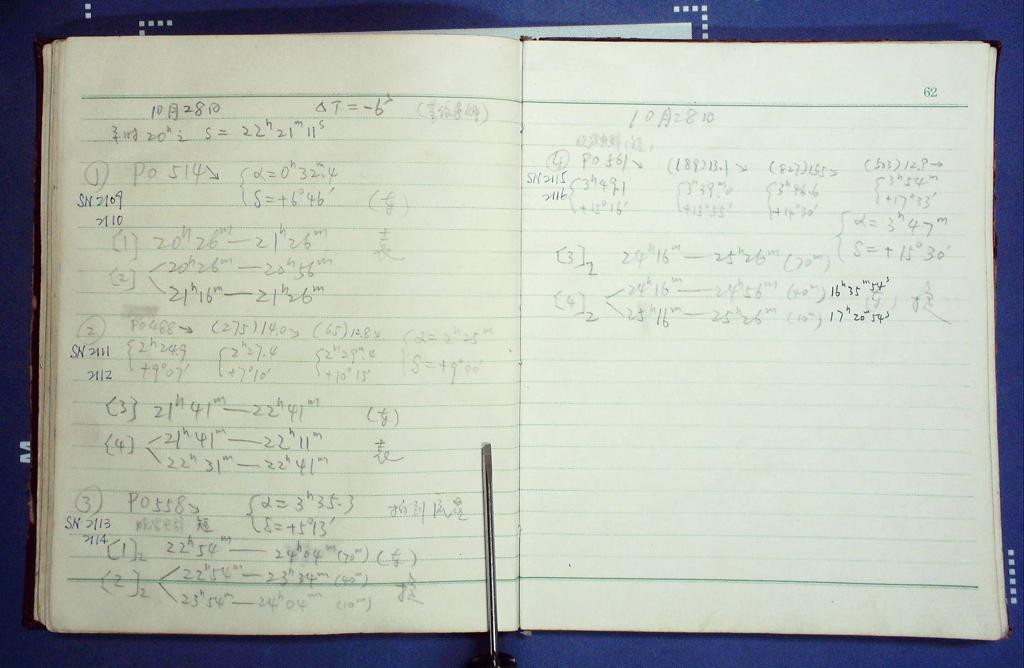 10月28日 ΔT=-6ˢ
20ʰ S=22ʰ21ᵐ11ˢ
① PO 514↘ {α=0ʰ32ᵐ.4
SN 2109 δ=+6°46′
2110
[1] 20ʰ26ᵐ—21ʰ26ᵐ
[2] 20ʰ26ᵐ—20ʰ56ᵐ
21ʰ16ᵐ—21ʰ26ᵐ
② PO488↘ (275)14.0↘ (65)12.8↘ {α=2ʰ25ᵐ
SN 2111 {2ʰ24.9 {2ʰ27.4 {2ʰ29ᵐ.4 δ=+9°00′
2112 +9°07′ +7°10′ +10°15′
[3] 21ʰ41ᵐ—22ʰ41ᵐ
[4] 21ʰ41ᵐ—22ʰ11ᵐ
22ʰ31ᵐ—22ʰ41ᵐ
③ PO558↘ {α=3ʰ35.3
SN 2113 短 δ=+5°13′
2114
[1]₂ 22ʰ54ᵐ—24ʰ04ᵐ(70ᵐ)
[2]₂ 22ʰ54ᵐ—23ʰ34ᵐ(40ᵐ)
23ʰ54ᵐ—24ʰ04ᵐ(10ᵐ)
62
10月28日
④ PO561↘ (189)13.1↘ (827)15.5↘ (503)12.9→
SN2115 {3ʰ49.1 {3ʰ39ᵐ.0 {3ʰ46.6 {3ʰ54ᵐ
2116 +15°16′ +15°55′ +14°30′ +17°33′
{α=3ʰ47ᵐ
δ=+15°30′
[3]₂ 24ʰ16ᵐ—25ʰ26ᵐ(70ᵐ)
[4]₂ 24ʰ16ᵐ—24ʰ56ᵐ(40ᵐ) 16ʰ35ᵐ54ˢ
25ʰ16ᵐ—25ʰ26ᵐ(10ᵐ) 17ʰ20ᵐ54ˢ